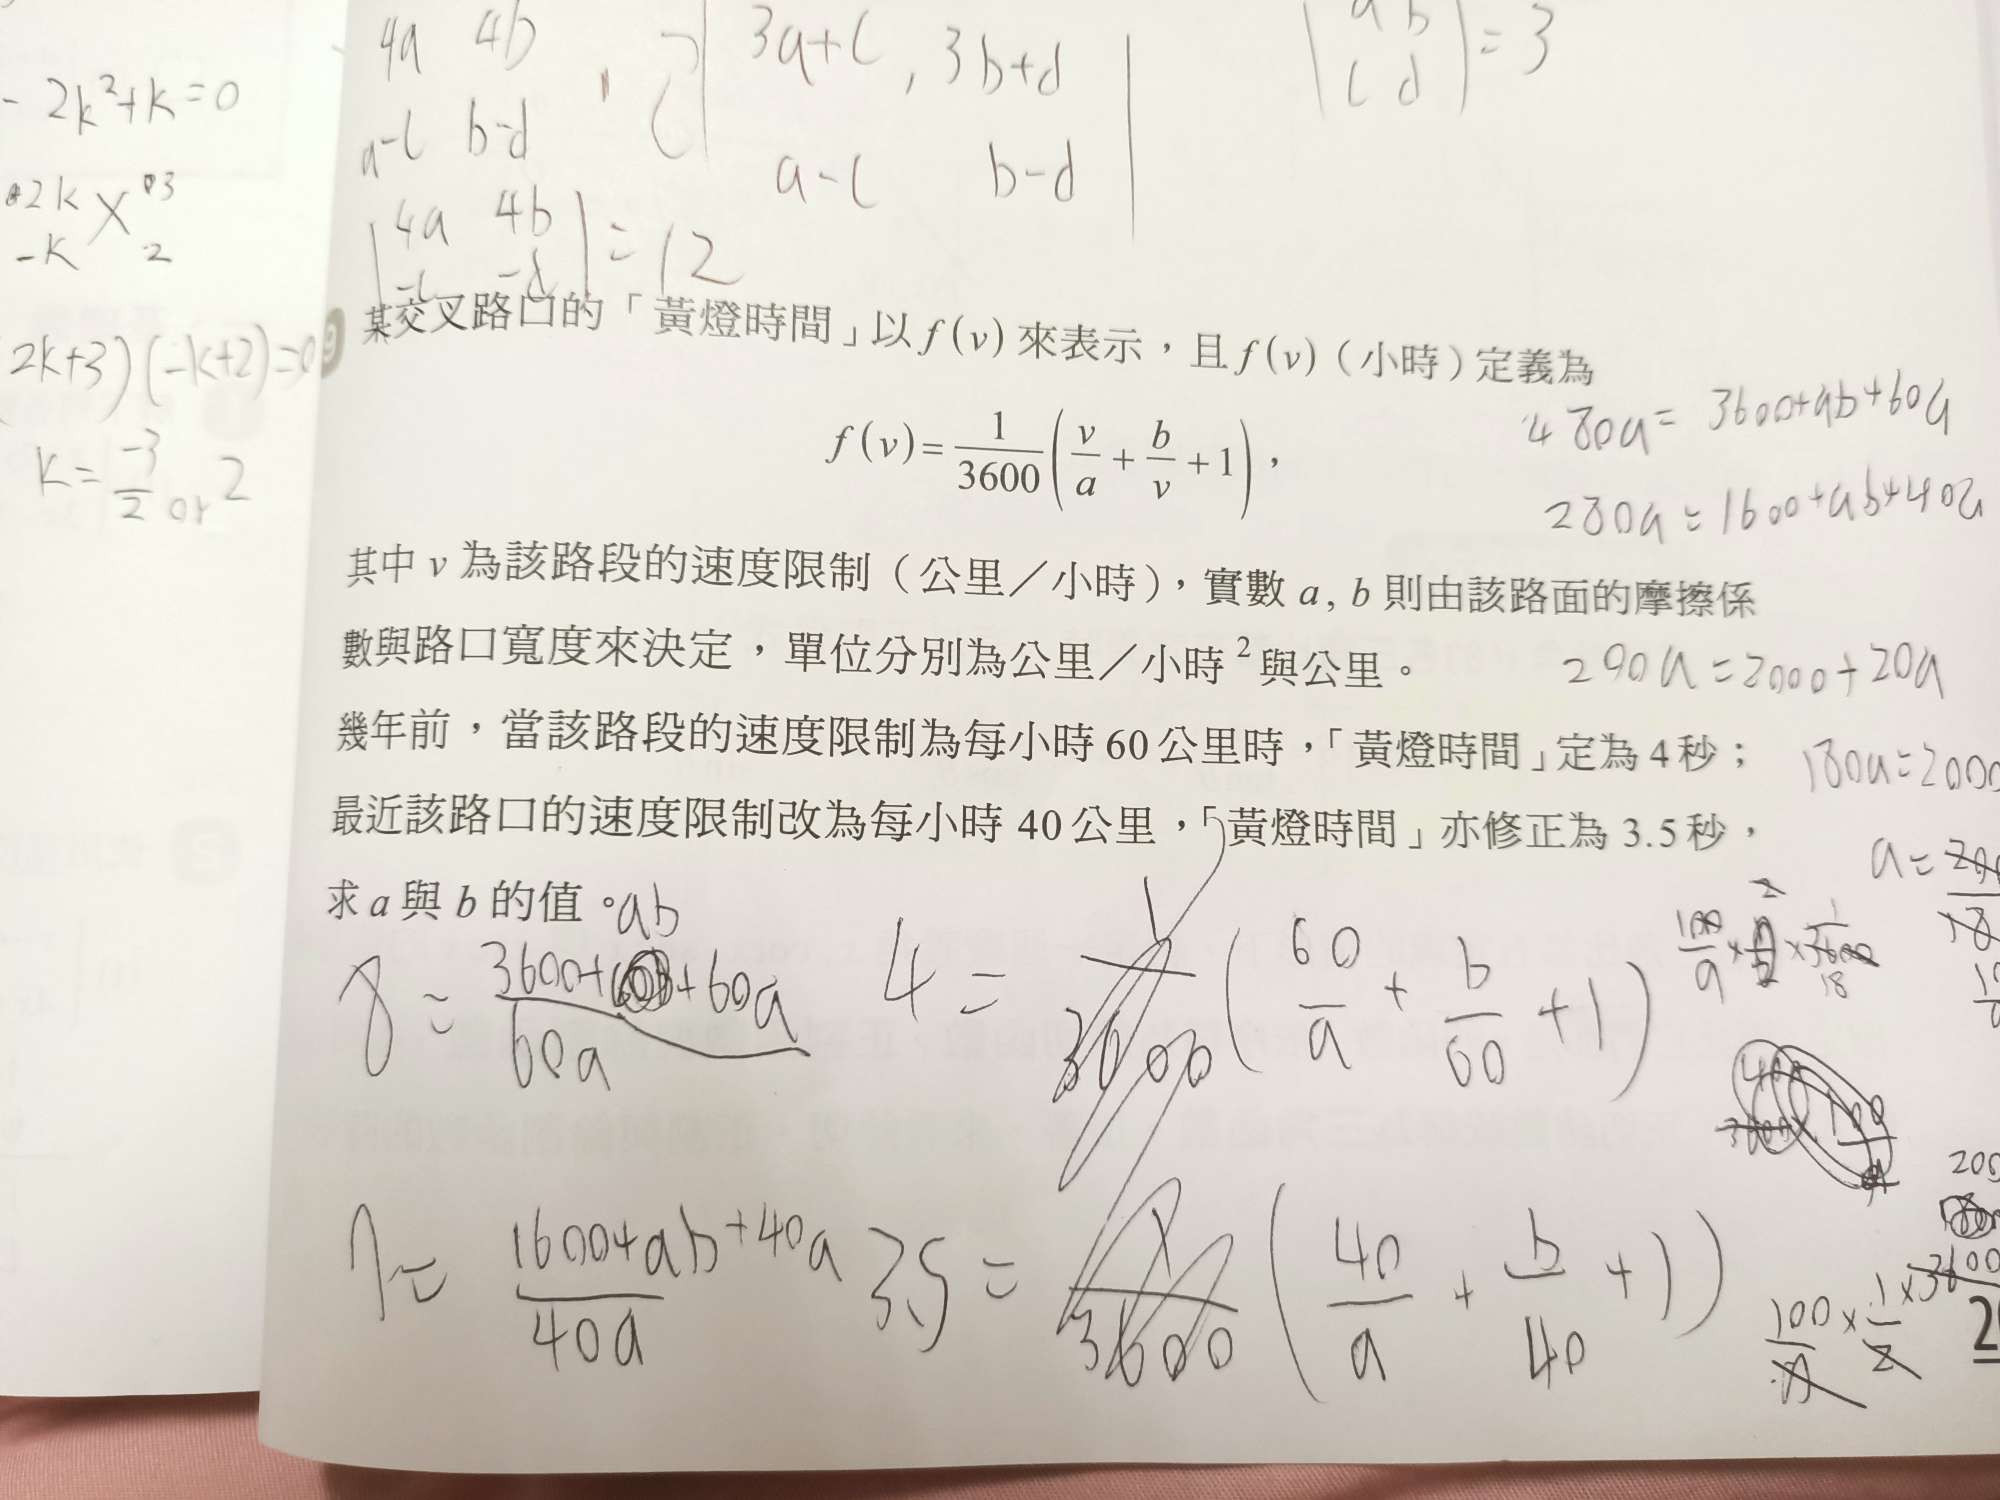 - 2k²+k=0
2k 3
-k 2
2k+3)(-k+2)=0
k= -3/2 or 2
4a 4b
a-c b-d
3a+c , 3b+d
a-c b-d
a b
c d =3
|4a 4b
-c -d|=12
9 某交叉路口的「黃燈時間」以 f(v) 來表示，且 f(v)（小時）定義為
f(v)= 1/3600 (v/a + b/v +1)，
其中 v 為該路段的速度限制（公里／小時），實數 a, b 則由該路面的摩擦係
數與路口寬度來決定，單位分別為公里／小時²與公里。
幾年前，當該路段的速度限制為每小時 60 公里時，「黃燈時間」定為 4 秒；
最近該路口的速度限制改為每小時 40 公里，「黃燈時間」亦修正為 3.5 秒，
求 a 與 b 的值。
480a= 3600+ab+60a
280a=1600+ab+40a
290a=2000+20a
180a=2000
a=
ab
8= 3600+ +60a / 60a
4= 1/3600 (60/a + b/60 +1)
7= 1600+ab+40a / 40a
3.5= 1/3600 (40/a + b/40 +1)
100/a
18
100 × 1/2 × 3600